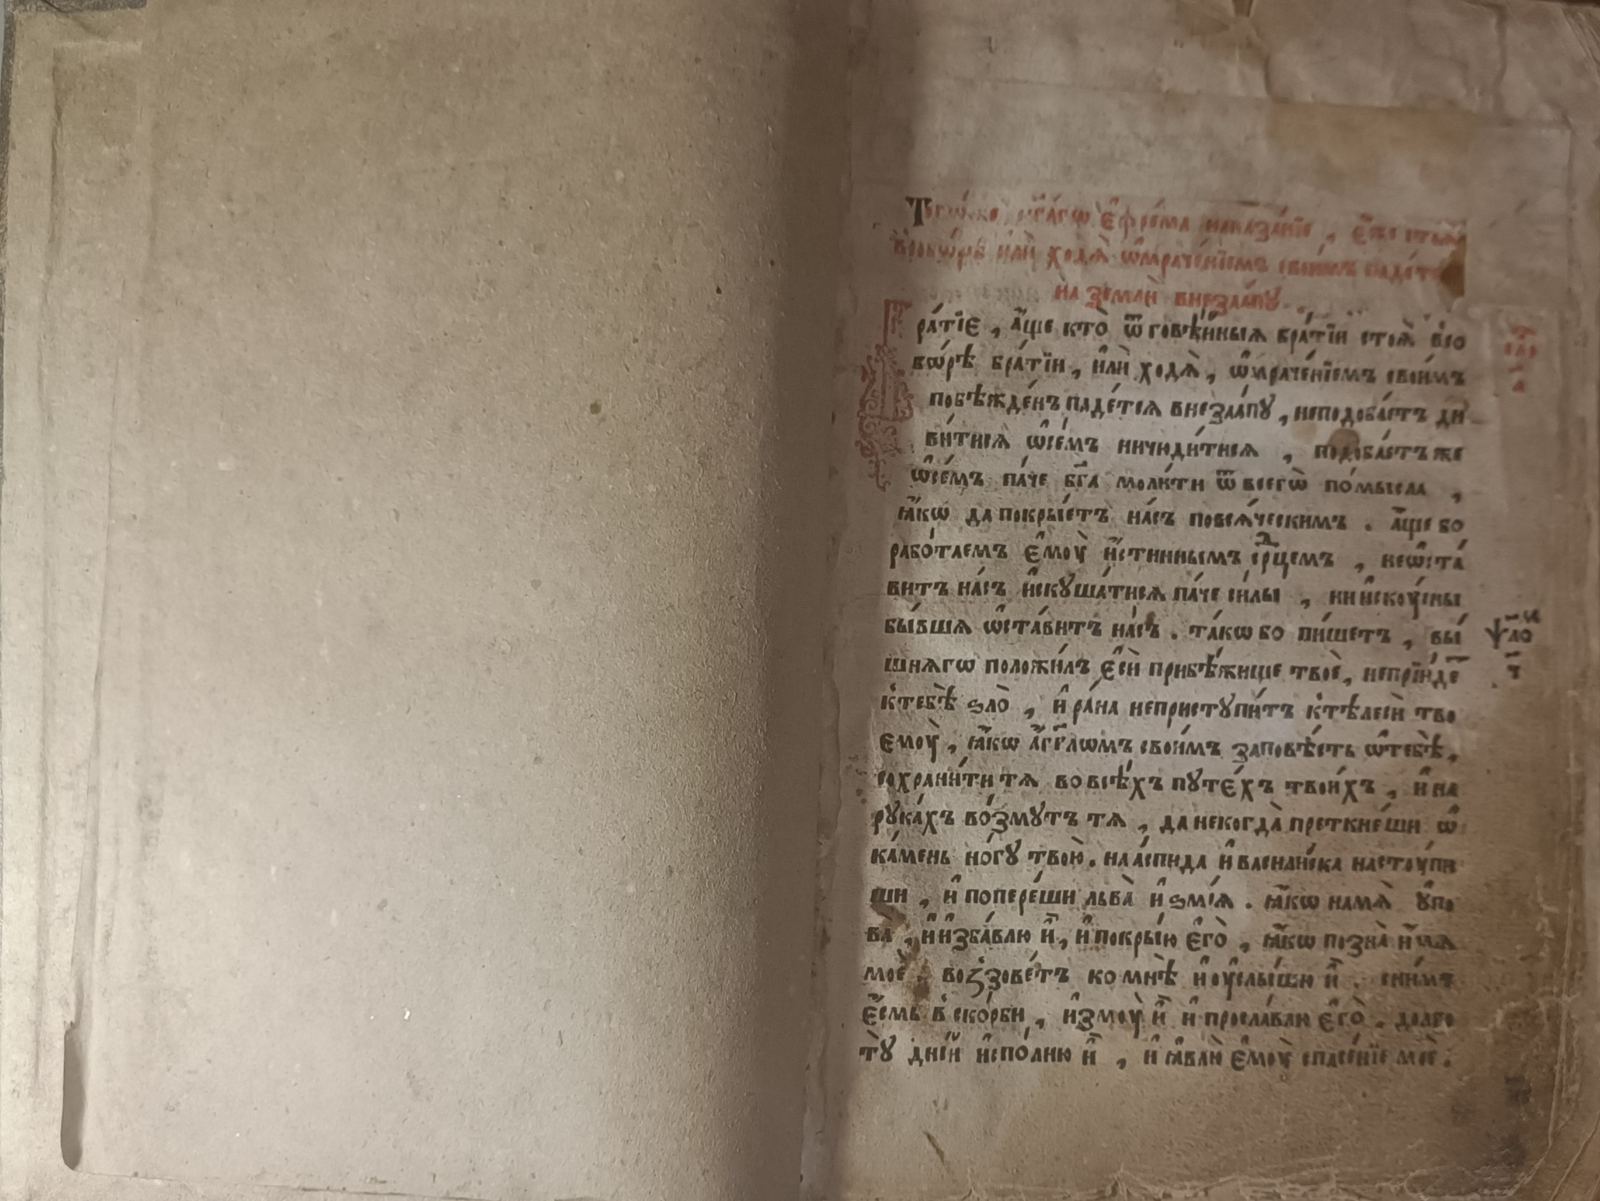 Тогѡ́же ст҃а́гѡ є҆фре́ма наказа́нїе, є҆́же
в̾собо́рѣ и҆лѝ ходѧ̀ ѡ҆мраче́нїемъ свои́мъ паде́тсѧ
на землѝ внеза́пу.
Бра́тїе, а҆́ще кто̀ ѿ говѣ́йныѧ бра́тїи стоѧ̀ в̾со
бѡ́рѣ бра́тїи, и҆лѝ ходѧ̀, ѡ҆мраче́нїемъ свои́мъ
побѣжде́нъ паде́тсѧ внеза́пу, неподоба́етъ ди
ви́тисѧ ѡ҆се́мъ ничюди́тисѧ, подоба́етъ же
ѡ҆се́мъ па́че бг҃а моли́ти ѿ всегѡ̀ по́мысла,
ꙗ҆́кѡ да покры́етъ на́съ повсѧ́ческимъ. а҆́ще бо
рабо́таемъ є҆моу̀ и҆́стиннымъ срⷣцемъ, неѡ҆ста́
витъ на́съ и҆скуша́тисѧ па́че си́лы, ни и҆скоу́сны
бы́вшѧ ѡ҆ста́витъ на́съ. та́кѡ бо пи́шетъ, вы́
шнѧгѡ положи́лъ є҆сѝ прибѣ́жище твоѐ, непрїи́де
к̾тебѣ̀ ѕло̀, и҆ ра́на неприступи́тъ к̾тѣлесѝ тво
є҆моу̀, ꙗ҆́кѡ а҆́гг҃лѡмъ свои́мъ заповѣ́сть ѡ҆тебѣ̀,
сохрани́ти тѧ во всѣ́хъ путе́хъ твои́хъ, и҆ на
рука́хъ во́змутъ тѧ, да некогда̀ преткне́ши ѡ҆
ка́мень но́гу твою̀. на а́спида и҆ васили́ска насто́упи
ши, и҆ попере́ши льва̀ и҆ ѕмі́ѧ. ꙗ҆́кѡ намѧ̀ ᲂу҆по
ва̀, и҆ и҆зба́влю и҆̀, и҆ покры́ю є҆го̀, ꙗ҆́кѡ позна̀ и҆́мѧ
моѐ. воззове́тъ ко мнѣ̀ и҆ ᲂу҆слы́шю и҆̀. сни́мъ
є҆́смь в̾ ско́рби, и҆змоу̀ и҆̀ и҆ просла́влю є҆го̀. долго
тꙋ̀ дні́й и҆спо́лню и҆̀, и҆ ꙗ҆влю̀ є҆моу̀ спасе́нїе моѐ.
ѱало
ч҃